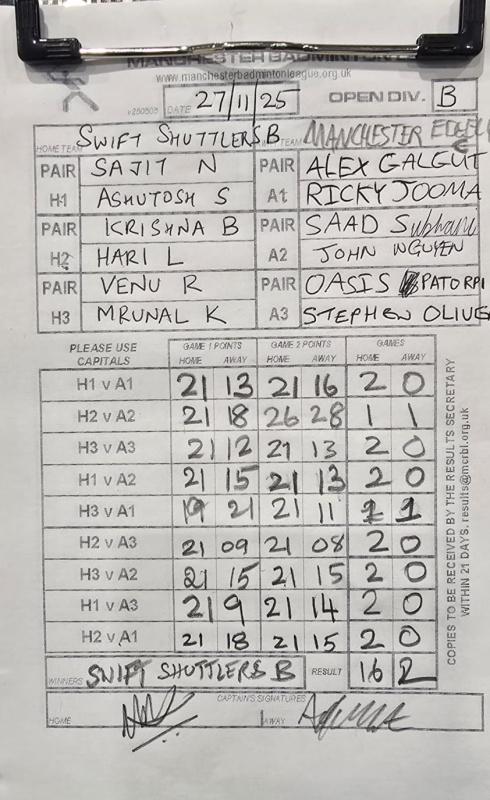 MANCHESTER BADMINTON
www.manchesterbadmintonleague.org.uk
v250503 DATE 27/11/25 OPEN DIV. B
HOME TEAM SWIFT SHUTTLERS B TEAM MANCHESTER
PAIR SAJIT N PAIR ALEX GALGUT
H1 ASHUTOSH S A1 RICKY JOOMA
PAIR KRISHNA B PAIR SAAD Subhani
H2 HARI L A2 JOHN NGUYEN
PAIR VENU R PAIR OASIS PATORPI
H3 MRUNAL K A3 STEPHEN OLIVE
PLEASE USE CAPITALS GAME 1 POINTS GAME 2 POINTS GAMES
HOME AWAY HOME AWAY HOME AWAY
H1 v A1 21 13 21 16 2 0
H2 v A2 21 18 26 28 1 1
H3 v A3 21 12 21 13 2 0
H1 v A2 21 15 21 13 2 0
H3 v A1 19 21 21 11 1 1
H2 v A3 21 09 21 08 2 0
H3 v A2 21 15 21 15 2 0
H1 v A3 21 9 21 14 2 0
H2 v A1 21 18 21 15 2 0
WINNERS SWIFT SHUTTLERS B RESULT 16 2
CAPTAIN'S SIGNATURES
HOME AWAY
COPIES TO BE RECEIVED BY THE RESULTS SECRETARY
WITHIN 21 DAYS. results@mcrbl.org.uk